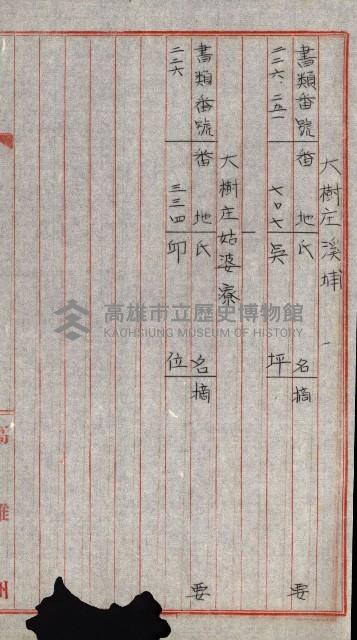 大樹庄溪埔
書類番號 番地 氏名 摘要
二二六・二五一 七〇七 吳坪
大樹庄姑婆寮
書類番號 番地 氏名 摘要
二二六 三三四 邱位
高雄州
高雄市立歷史博物館
KAOHSIUNG MUSEUM OF HISTORY